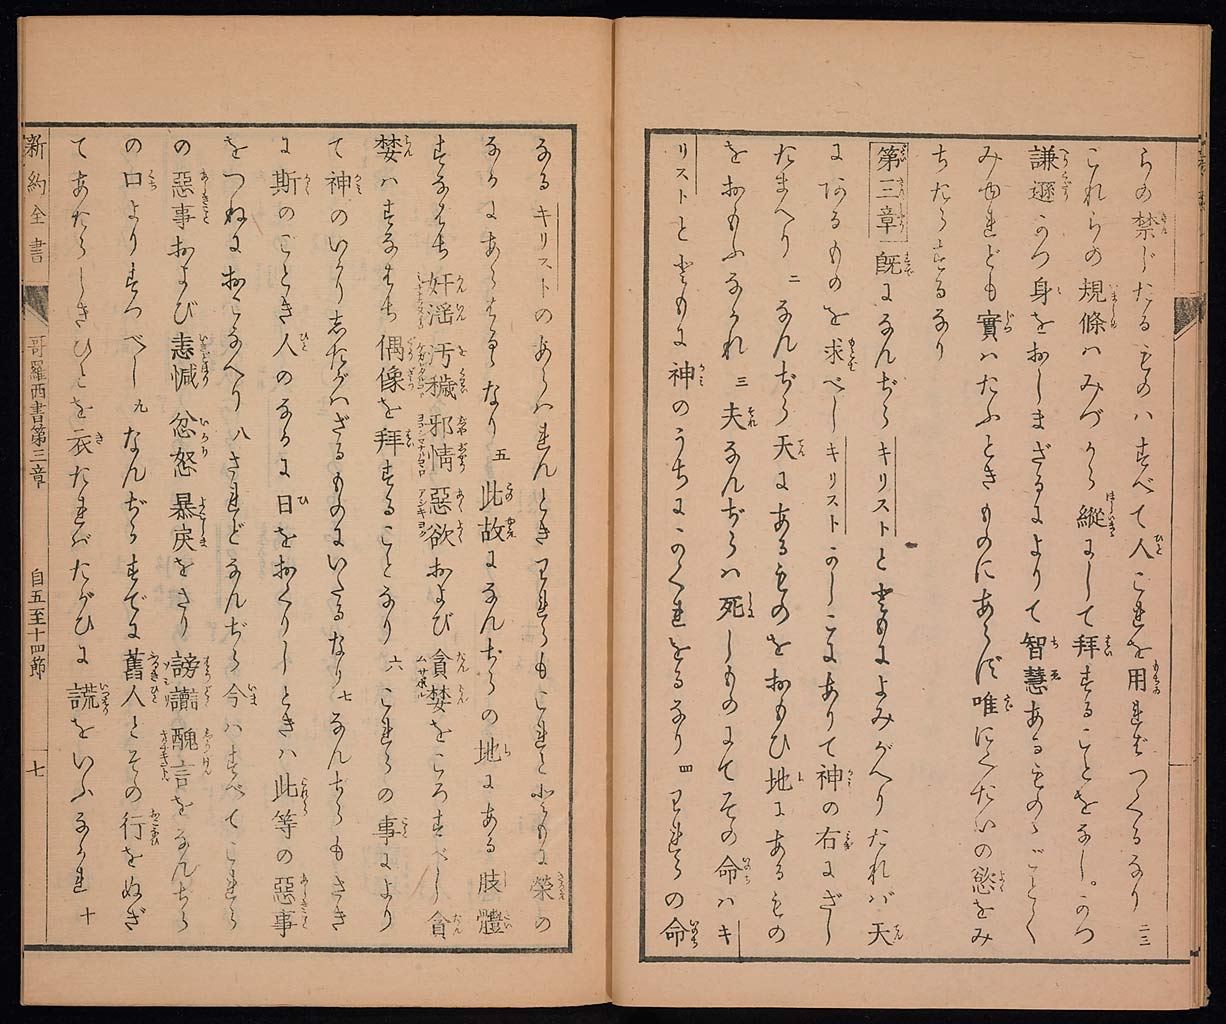 らの禁じたるものハすべて人これを用ればつくるなり 二三
これらの規條ハみづから縱にして拜することをなし。かつ
謙遜かつ身をおしまざるによりて智慧あるものゝごとく
みゆれども實ハたふときものにあらず唯にくたいの慾をみ
ちたらするなり
第三章 既になんぢらキリストと偕によみがへりたれバ天
にあるものを求べしキリストかしこにありて神の右にざし
たまへり 二 なんぢら天にあるものをおもひ地にあるもの
をおもふなかれ 三 夫なんぢらハ死しものにてその命ハキ
リストとともに神のうちにかくれをるなり 四 われらの命
なるキリストのあらハれんときわれらもこれとともに榮の
なかにあらはるゝなり 五 此故になんぢらの地にある肢體
すなはち奸淫汚穢邪情惡欲および貪婪をころすべし貪
婪ハすなはち偶像を拜することなり 六 これらの事により
て神のいかりしたがハざるものにいたるなり 七 なんぢらもさき
に斯のごとき人のなかに日をおくりしときハ此等の惡事
をつねにおこなへり 八 されどなんぢら今ハすべてこれら
の惡事および恚憾忿怒暴戻をさり謗讟醜言をなんぢら
の口よりすつべし 九 なんぢらすでに舊人とその行をぬぎ
てあたらしきひとを衣たればたがひに謊をいふなかれ 十
新約全書 哥羅西書第三章 自五至十四節 七